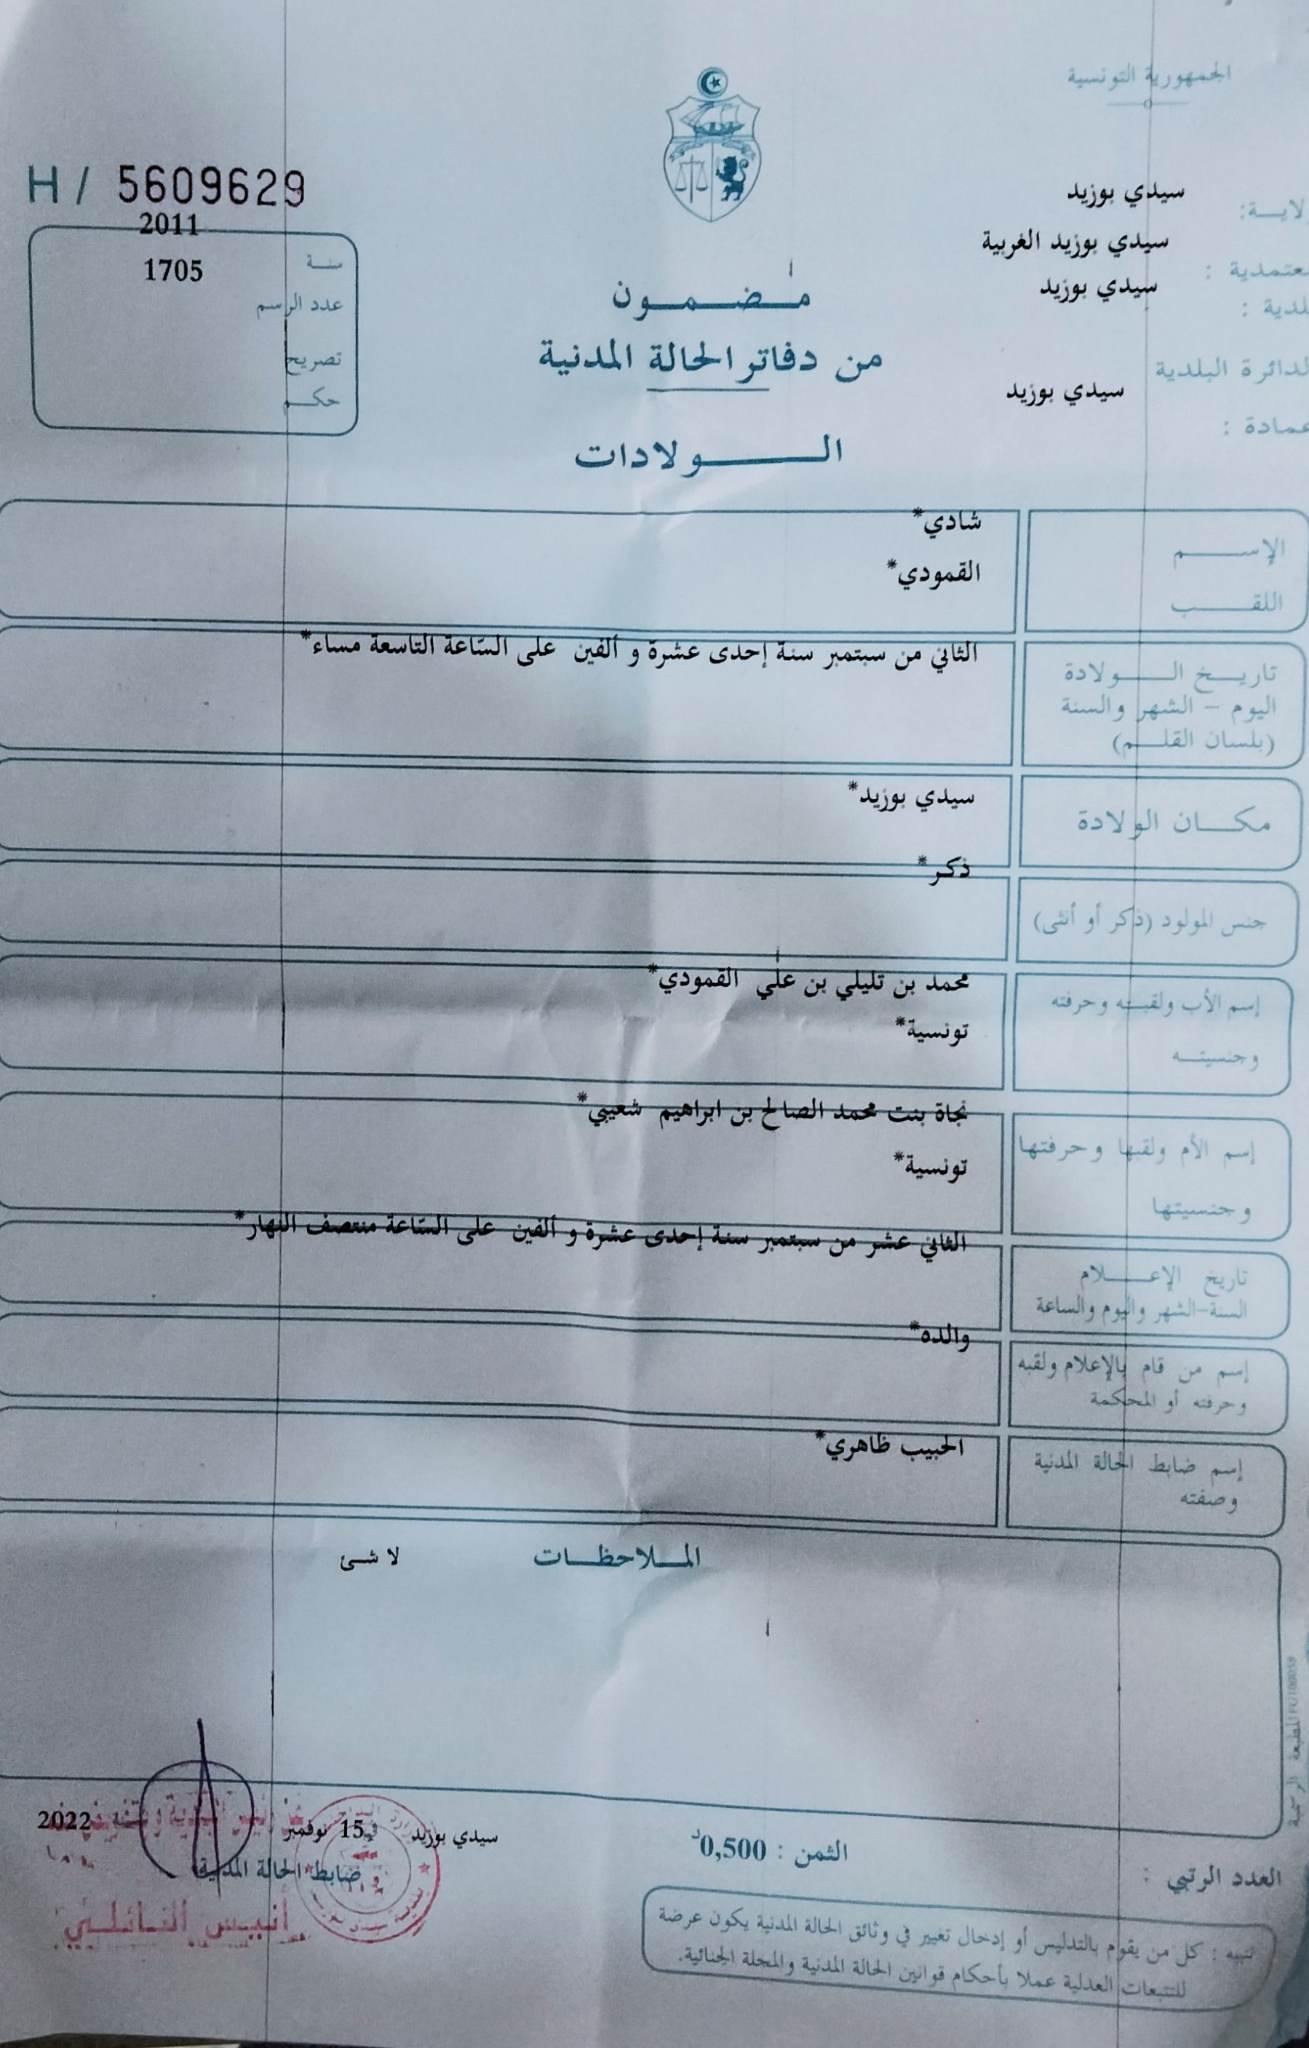 الجمهورية التونسية
H / 5609629
لاية: سيدي بوزيد
معتمدية : سيدي بوزيد الغربية
لدية : سيدي بوزيد
لدائرة البلدية سيدي بوزيد
عمادة :
سنة 2011
عدد الرسم 1705
تصريح
حكم
مضمون
من دفاتر الحالة المدنية
الولادات
الإسم شادي*
اللقب القمودي*
تاريخ الولادة الثاني من سبتمبر سنة إحدى عشرة و ألفين على السّاعة التاسعة مساء*
اليوم - الشهر والسنة
(بلسان القلم)
مكان الولادة سيدي بوزيد*
جنس المولود (ذكر أو أنثى) ذكر*
إسم الأب ولقبته وحرفته محمد بن تليلي بن علي القمودي*
وجنسيته تونسية*
إسم الأم ولقبها وحرفتها نجاة بنت محمد الصالح بن ابراهيم شعيبي*
وجنسيتها تونسية*
تاريخ الإعلام الثاني عشر من سبتمبر سنة إحدى عشرة و ألفين على السّاعة منتصف النهار*
السنة-الشهر واليوم والساعة
إسم من قام بالإعلام ولقبه والده*
وحرفته أو المحكمة
إسم ضابط الحالة المدنية الحبيب ظاهري*
وصفته
الملاحظات لا شئ
سيدي بوزيد في 15 نوفمبر 2022
ضابط الحالة المدنية
أنيس النائلي
الثمن : 0,500د
العدد الرتبي :
تنبيه : كل من يقوم بالتدليس أو إدخال تغيير في وثائق الحالة المدنية يكون عرضة
للتتبعات العدلية عملا بأحكام قوانين الحالة المدنية والمجلة الجنائية.